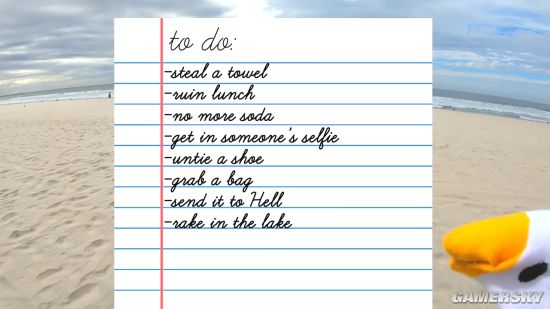 to do:
-steal a towel
-ruin lunch
-no more soda
-get in someone's selfie
-untie a shoe
-grab a bag
-send it to Hell
-rake in the lake
GAMERSKY